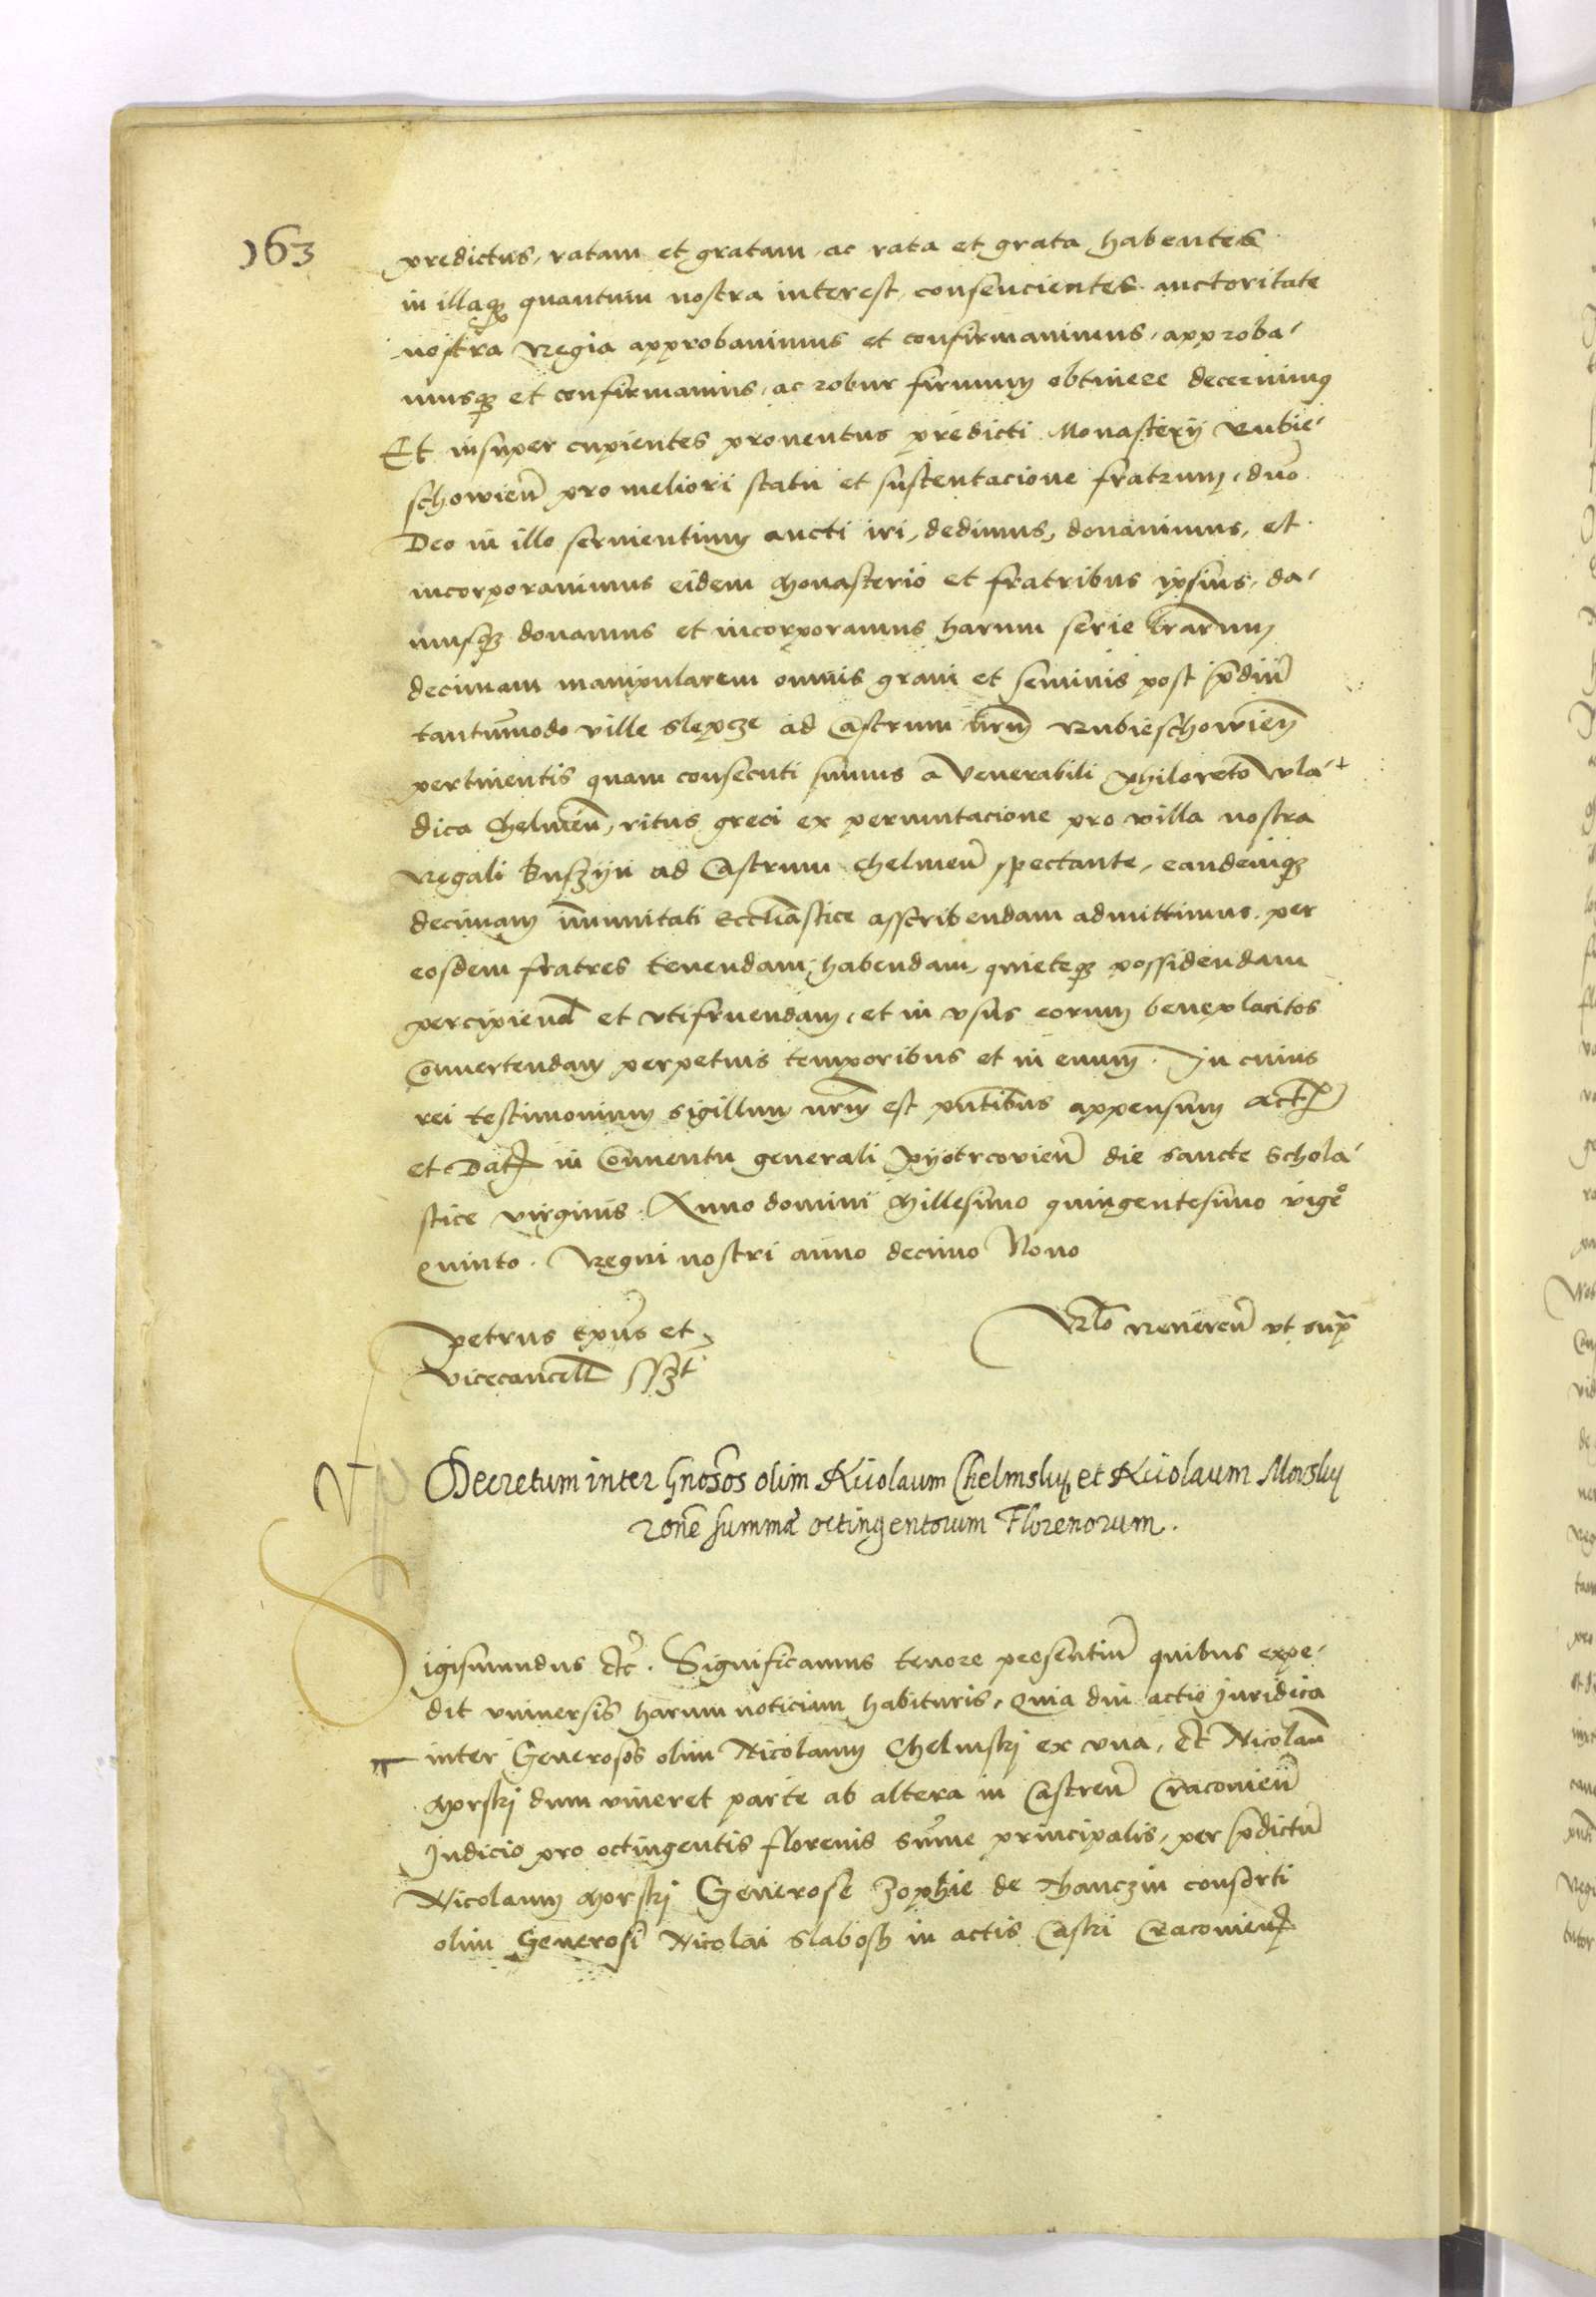 163
predictus, ratam et gratam ac rata et grata habentes
in illaqꝫ quantum nostra interest, consencientes auctoritate
nostra Regia approbavimus et confirmavimus, approba-
musqꝫ et confirmamus, ac robur firmum obtinere decernimus
Et insuper cupientes proventus predicti Monasterij Rubie-
schowien̄ pro meliori statu et sustentacione fratrum, duo
Deo in illo servientium aucti iri, dedimus, donavimus, et
incorporavimus eidem Monasterio et fratribus ipsius, da-
musqꝫ donamus et incorporamus harum serie lrarum
decimam manipularem omnis grani et seminis post p̄diū
tantummodo ville Slepcze ad Castrum nrm̄ Rubieschowien̄
pertinentis quam consecuti sumus a Venerabili Philoreto Wla-
dica Chelmen̄, ritus greci ex permutacione pro villa nostra
Regali Buszyn ad Castrum Chelmen̄ spectante, eandemqꝫ
decimam im̄unitati Eccl̄iastice asscribendam admittimus per
eosdem fratres tenendam, habendam, quieteqꝫ possidendam
percipiend et utifruendam, et in usus eorum beneplacitos
Convertendam perpetuis temporibus et in evum. In cuius
rei testimonium Sigillum nrm̄ est pn̄tibus appensum Act
et Dat in Conventu generali Pyotrcovien̄ die sancte Schola-
stice virginis. Anno domini Millesimo quingentesimo vigeo
quinto. Regni nostri anno decimo Nono
Petrus Ep̄us et
Vicecancell sszt
Rlo Reveren̄ ut supra
Decretum inter Gnosos olim Nicolaum Chelmsky, et Nicolaum Morsky
rone summae octingentorum Florenorum.
Sigismundus etc. Significamus tenore presentiu̅ quibus expe-
dit universis harum noticiam habituris, Quia dum actio Juridica
inter Generosos olim Nicolaum Chelmskj ex una, et Nicolau̅
Morskj dum viveret parte ab altera in Castren̄ Cracovien̄
Judicio pro octingentis florenis Sum̄e principalis, per p̄dictu̅
Nicolaum Morskj Generose Zophie de Thanczin consorti
olim Generosi Nicolai Slabosz in actis Castri Cracovien